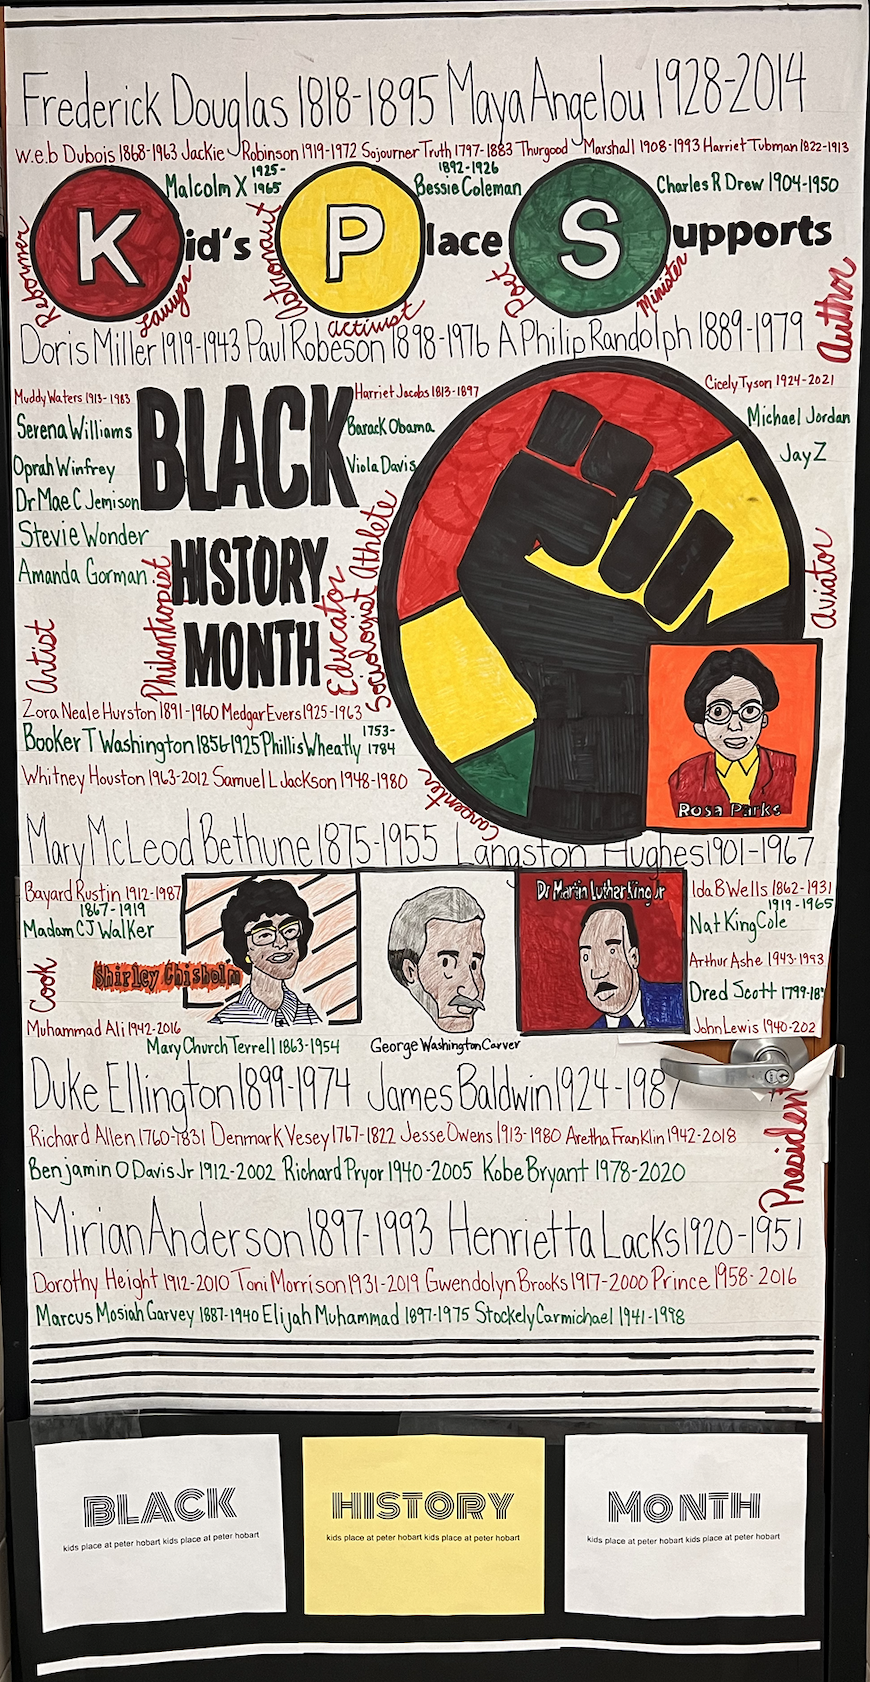 Frederick Douglas 1818-1895 Maya Angelou 1928-2014
W.e.b Dubois 1868-1963 Jackie Robinson 1919-1972 Sojourner Truth 1797-1883 Thurgood Marshall 1908-1993 Harriet Tubman 1822-1913
Malcolm X 1925-1965 Bessie Coleman 1892-1926 Charles R Drew 1904-1950
Kid's Place Supports
Reformer
Lawyer
Astronaut
activist
Poet
Minister
Author
Doris Miller 1919-1943 Paul Robeson 1898-1976 A Philip Randolph 1889-1979
Muddy Waters 1913-1983
Serena Williams
Oprah Winfrey
Dr Mae C Jemison
Stevie Wonder
Amanda Gorman
BLACK
HISTORY
MONTH
Harriet Jacobs 1813-1897
Barack Obama
Viola Davis
Cicely Tyson 1924-2021
Michael Jordan
Jay Z
Artist
Philantropist
Educator
Sociologist
Athlete
Aviator
Carpenter
Rosa Parks
Zora Neale Hurston 1891-1960 Medgar Evers 1925-1963
Booker T Washington 1856-1925 Phillis Wheatly 1753-1784
Whitney Houston 1963-2012 Samuel L Jackson 1948-1980
Mary McLeod Bethune 1875-1955 Langston Hughes 1901-1967
Bayard Rustin 1912-1987
1867-1919
Madam CJ Walker
Shirley Chisholm
Cook
Muhammad Ali 1942-2016
Mary Church Terrell 1863-1954
George Washington Carver
Dr Martin Luther King Jr
Ida B Wells 1862-1931
1919-1965
Nat King Cole
Arthur Ashe 1943-1993
Dred Scott 1799-18
John Lewis 1940-202
Duke Ellington 1899-1974 James Baldwin 1924-198
President
Richard Allen 1760-1831 Denmark Vesey 1767-1822 Jesse Owens 1913-1980 Aretha Franklin 1942-2018
Benjamin O Davis Jr 1912-2002 Richard Pryor 1940-2005 Kobe Bryant 1978-2020
Mirian Anderson 1897-1993 Henrietta Lacks 1920-1951
Dorothy Height 1912-2010 Toni Morrison 1931-2019 Gwendolyn Brooks 1917-2000 Prince 1958-2016
Marcus Mosiah Garvey 1887-1940 Elijah Muhammad 1897-1975 Stockely Carmichael 1941-1998
BLACK
kids place at peter hobart kids place at peter hobart
HISTORY
kids place at peter hobart kids place at peter hobart
MONTH
kids place at peter hobart kids place at peter hobart